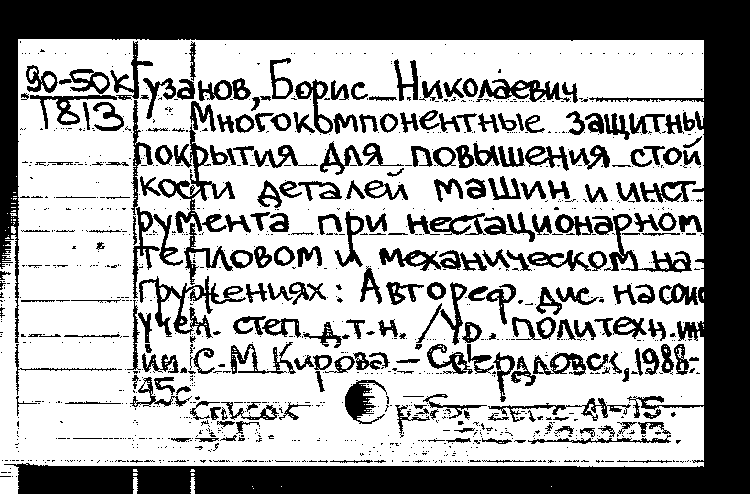 90-50к Гузанов, Борис Николаевич
1813 Многокомпонентные защитны
покрытия для повышения стой
кости деталей машин и инст-
румента при нестационарном
тепловом и механическом на-
гружениях: Автореф. дис. на соис
учен. степ. д.т.н. /Ур. политехн. ин
им. С.М Кирова. – Свердловск, 1988.-
45с.
Список работ авт.: с. 41-45.
ДСП.